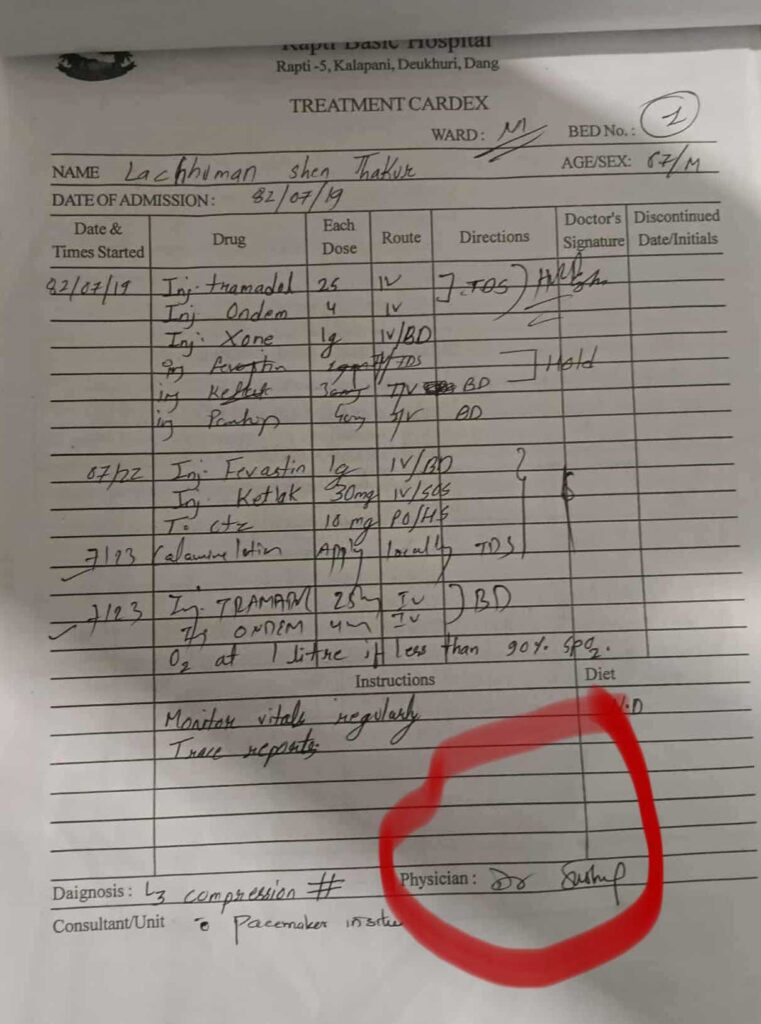 Rapti Basic Hospital
Rapti -5, Kalapani, Deukhuri, Dang
TREATMENT CARDEX
WARD: M BED No.: 1
NAME Lachhuman shen Thakur AGE/SEX: 67/M
DATE OF ADMISSION: 82/07/19
Date & Times Started Drug Each Dose Route Directions Doctor's Signature Discontinued Date/Initials
82/07/19 Inj. tramadol 25 IV TDS Hold
Inj Ondem 4 IV
Inj. Xone 1g IV/BD
inj fevastin TDS Hold
inj Ketlak 30mg IV BD
inj Pantop 40mg IV BD
07/22 Inj. Fevastin 1g IV/BD
Inj. Ketlak 30mg IV/SOS
T. ctz 10 mg PO/HS
7/23 Calamine lotion Apply locally TDS
7/23 Inj. TRAMADOL 25m IV BD
Inj ONDEM 4m IV
O2 at 1 litre if less than 90% SpO2.
Instructions Diet
Monitor vitals regularly N.D
Trace reports
Daignosis: L3 compression # Physician: Dr
Consultant/Unit c Pacemaker insitu